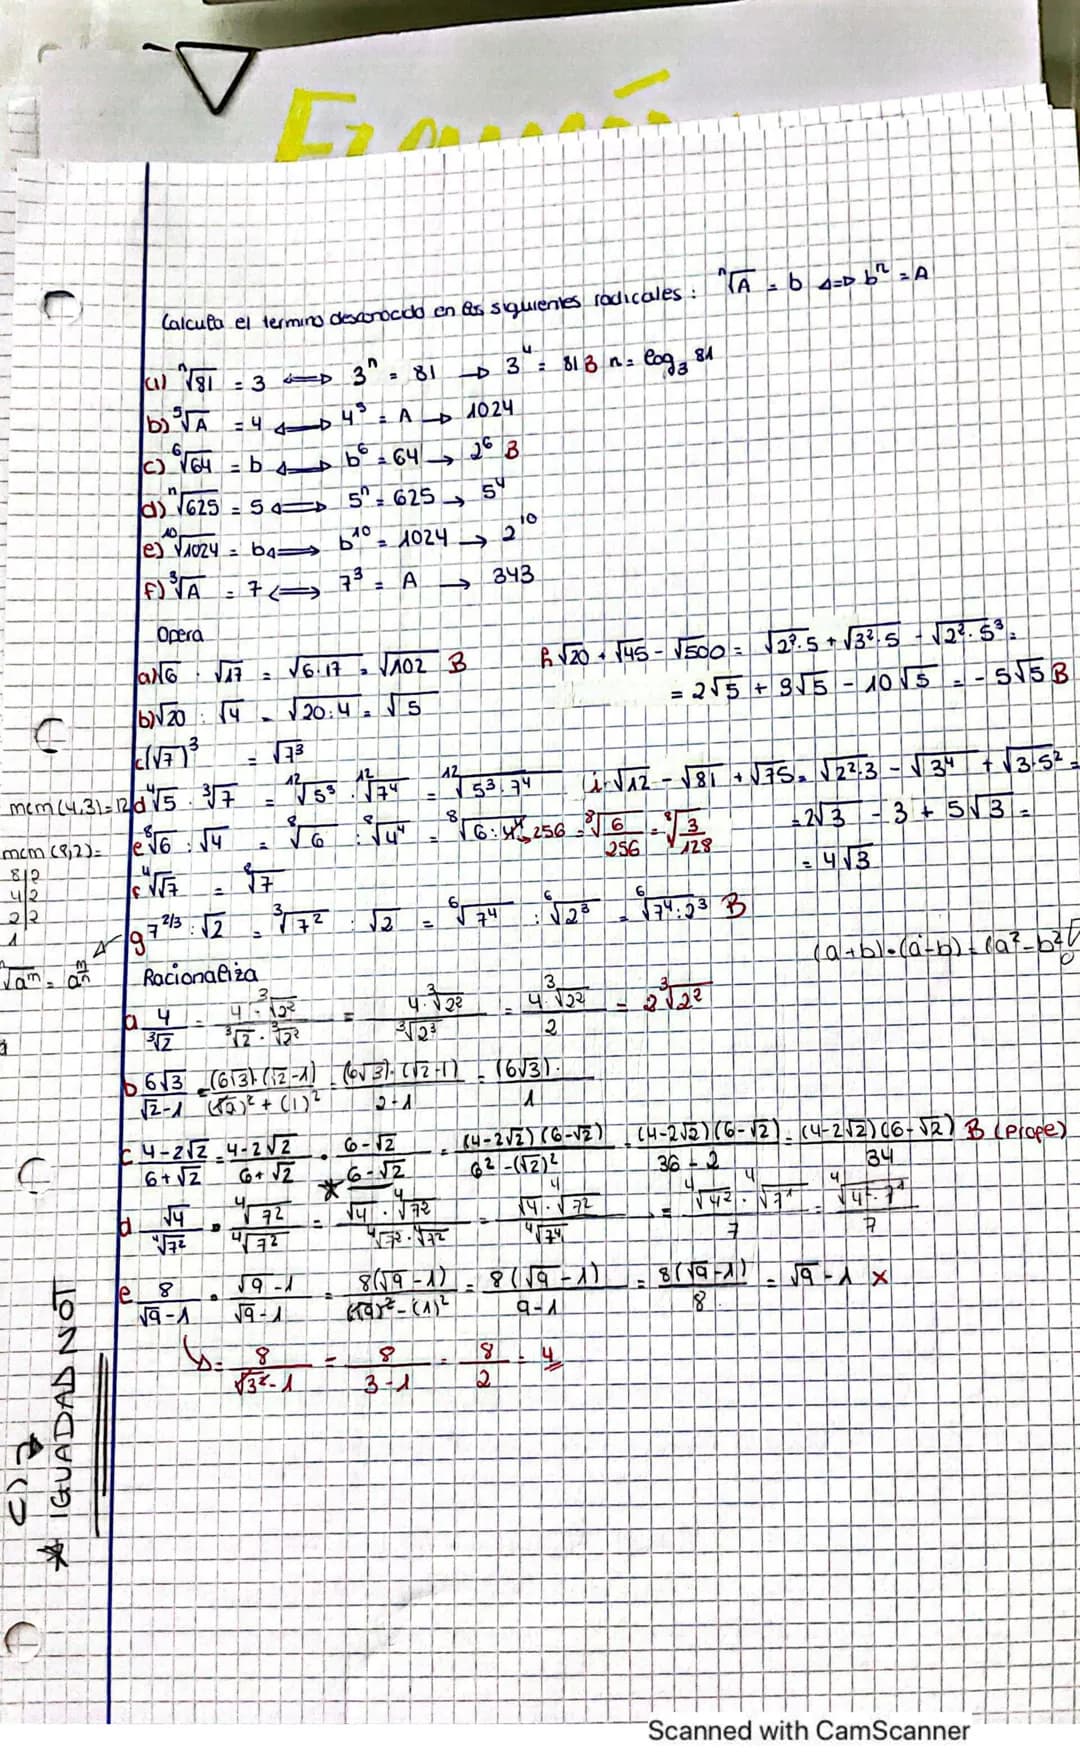 Examén
Calcula el termino desconocido en los siguientes radicales: ⁿ√A = b ⇔ bⁿ = A
a) ⁿ√81 = 3 ⇔ 3ⁿ = 81 → 3⁴ = 81 B n = log₃ 81
b) ⁵√A = 4 ⇔ 4⁵ = A → 1024
c) ⁶√64 = b ⇔ b⁶ = 64 → 2⁶ B
d) ⁿ√625 = 5 ⇔ 5ⁿ = 625 → 5⁴
e) ¹⁰√1024 = b ⇔ b¹⁰ = 1024 → 2¹⁰
f) ³√A = 7 ⇔ 7³ = A → 343
Opera
a) √6 · √17 = √6·17 = √102 B
b) √20 : √4 = √20:4 = √5
c (√7)³ = √7³
mcm (4,3) = 12 d ⁴√5 · ³√7 = ¹²√5³ · ¹²√7⁴ = ¹²√5³·7⁴
mcm (8,2) = e ⁸√6 : √4 = ⁸√6 : ⁸√4⁴ = ⁸√6:4⁴ → 256 = ⁸√6/256 = ⁸√3/128
8|2
4|2
2|2
1
f ⁴√√7 = ⁸√7
g 7^2/3 : √2 = ³√7² : √2 = ⁶√7⁴ : ⁶√2³ = ⁶√7⁴:2³ B
ⁿ√aᵐ = a^m/n
h √20 + √45 - √500 = √2²·5 + √3²·5 - √2²·5³ =
= 2√5 + 3√5 - 10√5 = - 5√5 B
i √12 - √81 + √75 = √2²·3 - √3⁴ + √3·5² =
= 2√3 - 3 + 5√3 =
= 4√3
(a+b)·(a-b) = (a²-b²)
Racionaliza
a 4/³√2 = 4·³√2²/³√2·³√2² = 4·³√2²/³√2³ = 4·³√2²/2 = 2³√2²
b 6√3/√2-1 = (6√3)·(√2-1)/(√2)²+(1)² = (6√3)·(√2-1)/2-1 = (6√3)·/1
c 4-2√2/6+√2 = 4-2√2/6+√2 · 6-√2/6-√2 = (4-2√2)(6-√2)/6²-(√2)² = (4-2√2)(6-√2)/36-2 = (4-2√2)(6-√2)/34 B (Prope)
*
d √4/⁴√7² · ⁴√7²/⁴√7² = √4·⁴√7²/⁴√7²·⁴√7² = √4·⁴√7²/⁴√7⁴ = ⁴√4²·⁴√7²/7 = ⁴√4²·7²/7
e 8/√9-1 · √9-1/√9-1 = 8(√9-1)/(√9)²-(1)² = 8(√9-1)/9-1 = 8(√9-1)/8 = √9-1 x
↳ = 8/√3²-1 = 8/3-1 = 8/2 = 4
C) →
* IGUADAD NOT
Scanned with CamScanner